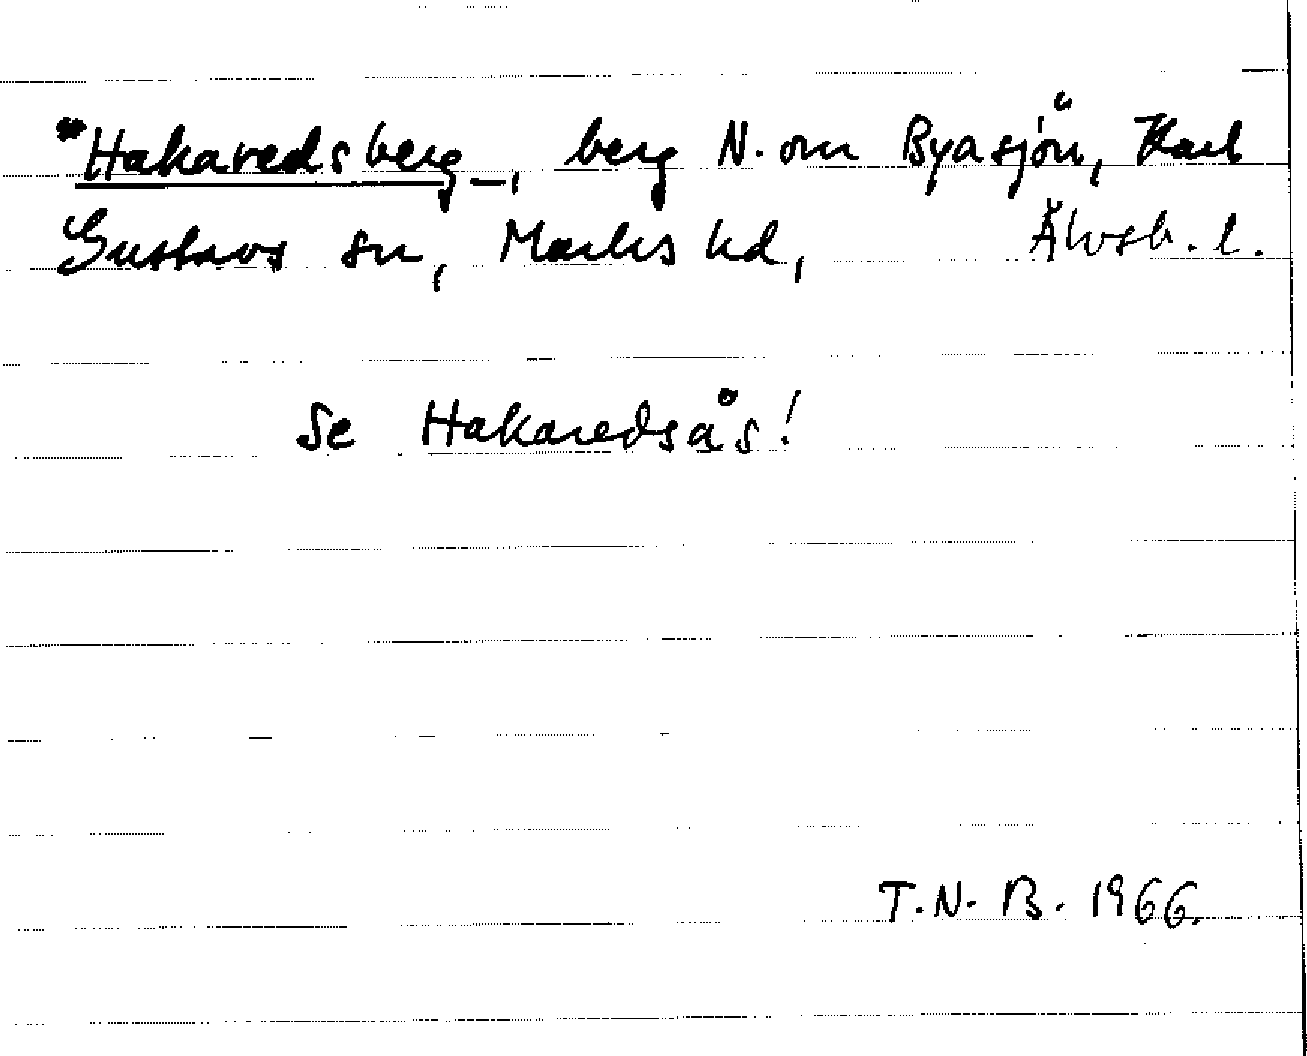 *Hakaredsberg, berg N. om Byasjön, Karl
Gustavs sn, Marks hd, Älvsb. l.
Se Hakaredsås!
T.N.B. 1966.